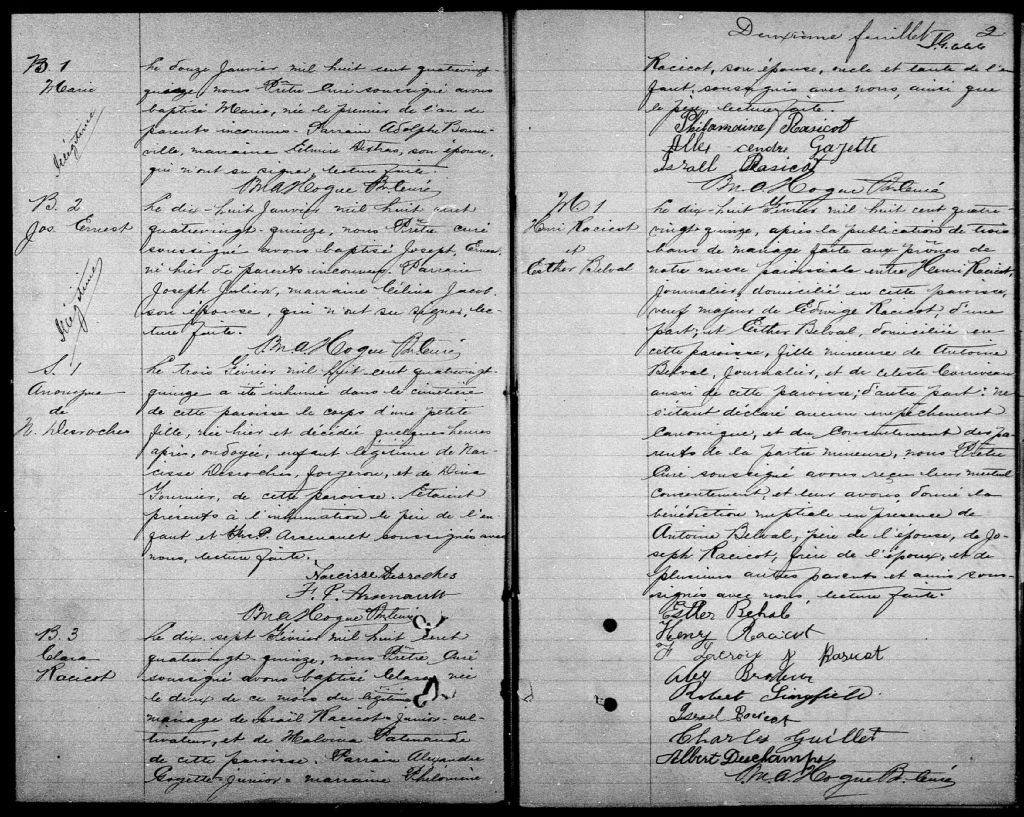 B 1
Marie
Illégitime
Le douze Janvier mil huit cent quatrevingt-
quinze nous Prêtre Curé soussigné avons
baptisé Marie, née le premier de l'an de
parents inconnus. Parrain Adolphe Bonne-
ville, marraine Elmire son épouse,
qui n'ont su signer, lecture faite.
M. A. Hogue Ptr Curé
B. 2
Jos. Ernest
Illégitime
Le dix-huit Janvier mil huit cent
quatrevingt-quinze, nous Prêtre curé
soussigné avons baptisé Joseph, Ernest
né hier de parents inconnus. Parrain
Joseph Julien, marraine Célina Jacob
son épouse, qui n'ont su signer, lec-
ture faite.
M. A. Hogue Ptr Curé
S. 1
Anonyme
de
N. Desroches
Le trois Février mil huit cent quatrevingt-
quinze a été inhumé dans le cimetière
de cette paroisse le corps d'une petite
fille, née hier et décédée quelques heures
après, ondoyée, enfant légitime de Nar-
cisse Desroches, forgeron, et de Dina
Fournier, de cette paroisse. Etaient
présents à l'inhumation le père de l'en
fant et F. P. Arsenault soussignés avec
nous, lecture faite.
Narcisse Desroches
F. P. Arsenault
M. A. Hogue Ptr Curé
B. 3
Clara
Racicot
Le dix-sept Février mil huit cent
quatrevingt-quinze, nous Prêtre Curé
soussigné avons baptisé Clara, née
le deux de ce mois du légitime
mariage de Israil Racicot-Junior-cul-
tivateur, et de Malvina Patenaude
de cette paroisse. Parrain Alexandre
Gazette-Junior- marraine Philomène
Deuxième feuillet 2
Racicot, son épouse, oncle et tante de l'en
fant soussignés avec nous, ainsi que
le père, lecture faite.
Philamaine Rasicot
Allex cendre Gazette
Israll Rasicot
M. A. Hogue Ptr Curé
M 1
Henri Racicot
et
Esther Belval
Le dix-huit Février mil huit cent quatre-
vingt quinze, après la publication de trois
bans de mariage faite aux prônes de
notre messe paroissiale entre Henri Racicot,
Journalier, domicilié en cette paroisse,
veuf majeur de Edwige Racicot d'une
part; et Esther Belval, domiciliée en
cette paroisse, fille mineure de Antoine
Belval, Journalier, et de Celeste
aussi de cette paroisse, d'autre part: ne
s'étant déclaré aucun empêchement
canonique, et du consentement des pa
rents de la partie mineure, nous Prêtre
Curé soussigné avons reçu leur mutuel
consentement, et leur avons donné la
bénédiction nuptiale en présence de
Antoine Belval, père de l'épouse, de Jo-
seph Racicot, frère de l'époux, et de
plusieurs autres parents et amis sous-
signés avec nous, lecture faite.
Esther Belval
Henry Racicot
F Lacroix J Rasicot
Alex Brodeur
Robert
Israel Racicot
Charles Guillet
Albert Deschamps
M. A. Hogue Ptr Curé